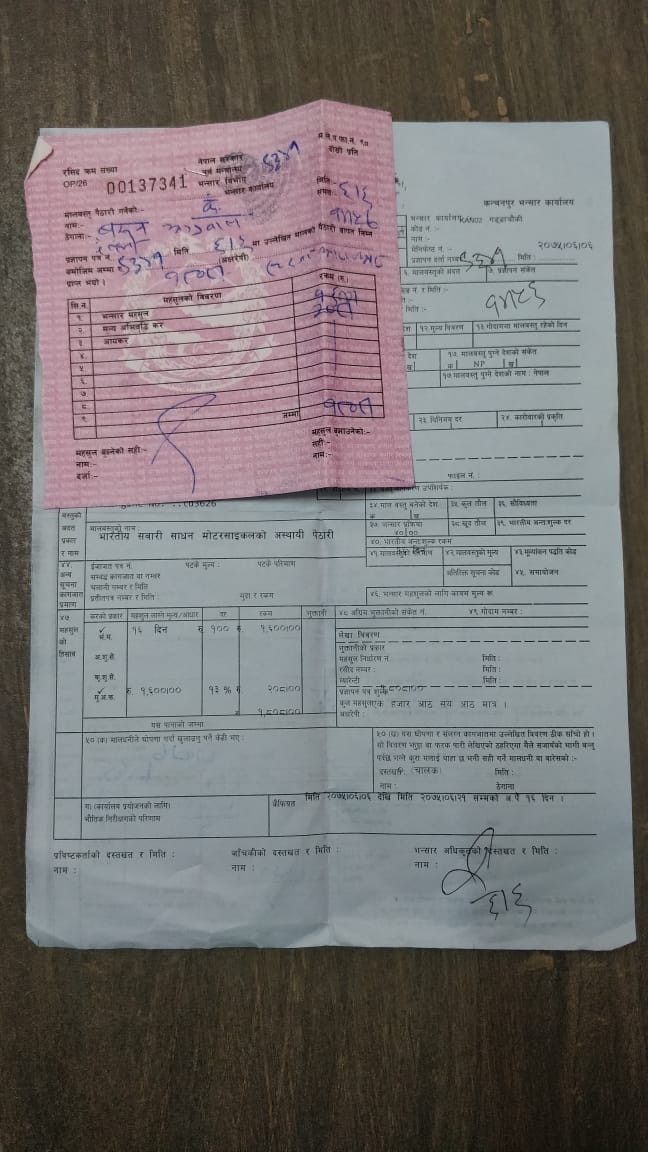 रसिद क्रम संख्या
OP/26 00137341
नेपाल सरकार
अर्थ मन्त्रालय
भन्सार विभाग
भन्सार कार्यालय
म.ले.प.फा.नं. १०
दोस्रो प्रति
मिति:-
मालवस्तु पैठारी गर्नेको:-
नाम:-
ठेगाना:-
प्रज्ञापन पत्र नं. मिति ६।६ मा उल्लेखित मालको पैठारी वापत निम्न
बमोजिम जम्मा (अक्षरेपी)
प्राप्त भयो।
सि.नं. महसुलको विवरण रकम (रु.)
१ भन्सार महसुल
२. मूल्य अभिवृद्धि कर
३ आयकर
४.
५.
६.
७
८
९
जम्मा
महसुल बुझ्नेको सही:-
नाम:-
दर्जा:-
महसुल बुझाउनेको:-
सही:-
नाम:-
कञ्चनपुर भन्सार कार्यालय
भन्सार कार्यालय KAN02 गड्डाचौकी
कोड नं :-
नाम :-
मेनिफेष्ट नं. :-
प्रज्ञापन दर्ता नम्बर मिति : २०७५।०६।०६
६. मालवस्तुको अवस्था ७. प्रज्ञापन संकेत
नं र मिति :-
मिति :-
१२ मूल्य विवरण १३ गोदाममा मालवस्तु रहेको दिन
१५. मालवस्तु पुग्ने देशको संकेत
क NP ख
१७ मालवस्तु पुग्ने देशको नाम : नेपाल
२३. विनिमय दर २४. कारोवारको प्रकृति
फाइल नं :
उपशिर्षक :
३४ माल वस्तु बनेको देश ३५. कूल तौल ३६. सौविध्यता
क ख
३७. भन्सार प्रक्रिया ३८. खूद तौल ३९. भारतीय अन्त:शुल्क दर
४०।००
४०. भारतीय अन्त:शुल्क रकम
वस्तुको
अवस्था
प्रकार
र नाम
मालवस्तुको नाम :
भारतीय सवारी साधन मोटरसाइकलको अस्थायी पैठारी
४१. ४२. मालवस्तुको मूल्य ४३ मूल्यांकन पद्धति कोड
४४.
अन्य
सूचना
कागजात
प्रमाण
इजाजत पत्र नं. पटके मूल्य : पटके परिमाण
सम्बद्ध कागजात वा नम्बर
चलानी नम्बर र मिति
प्रतीतपत्र नम्बर र मिति : मुद्रा र रकम
अतिरिक्त सूचना कोड ४५. समायोजन
४६. भन्सार महसुलको लागि कायम मूल्य रू.
४७
महसुल
को
हिसाव
करको प्रकार महसुल लाग्ने मूल्य/आधार दर रकम भुक्तानी
भं.म. १६ दिन रु १०० रु १,६००।००
अ.शु.सी.
कृ.सु.सी.
मु.अ.क. रु. १,६००।०० १३ % रु २०८।००
रु १,८०८।००
यस पानाको जम्मा
४८ अग्रिम भुक्तानीको संकेत नं. ४९. गोदाम नम्बर :
लेखा विवरण
भुक्तानीको प्रकार
महसुल निर्धारण नं. मिति :
रसीद नम्बर : मिति :
ग्यारेन्टी मिति :
प्रज्ञापन पत्र शुल्क
कूल महसुल एक हजार आठ सय आठ मात्र ।
अक्षरेपी :
५० (क) मालधनीले घोषणा गर्दा खुलाउनु पर्ने केही भए :
५० (ख) यस घोषणा र संलग्न कागजातमा उल्लेखित विवरण ठीक साँचो हो।
यो विवरण झुठ्ठा वा फरक परी लेखिएको ठहरिएमा मैले सजायँको भागी बन्नु
पर्दछ भन्ने कुरा मलाई थाहा छ भनी सही गर्ने मालधनी वा वारेसको :-
दस्तखत : चालक : मिति :
नाम : ठेगाना
ग। (कार्यालय प्रयोजनको लागि)
भौतिक निरीक्षणको परिणाम
कैफियत मिति २०७५।०६।०६ देखि मिति २०७५।०६।२१ सम्मको अ.पै १६ दिन ।
प्रविष्टकर्ताको दस्तखत र मिति :
नाम :
जाँचकीको दस्तखत र मिति :
नाम :
भन्सार अधिकृतको दस्तखत र मिति :
नाम :
६।६